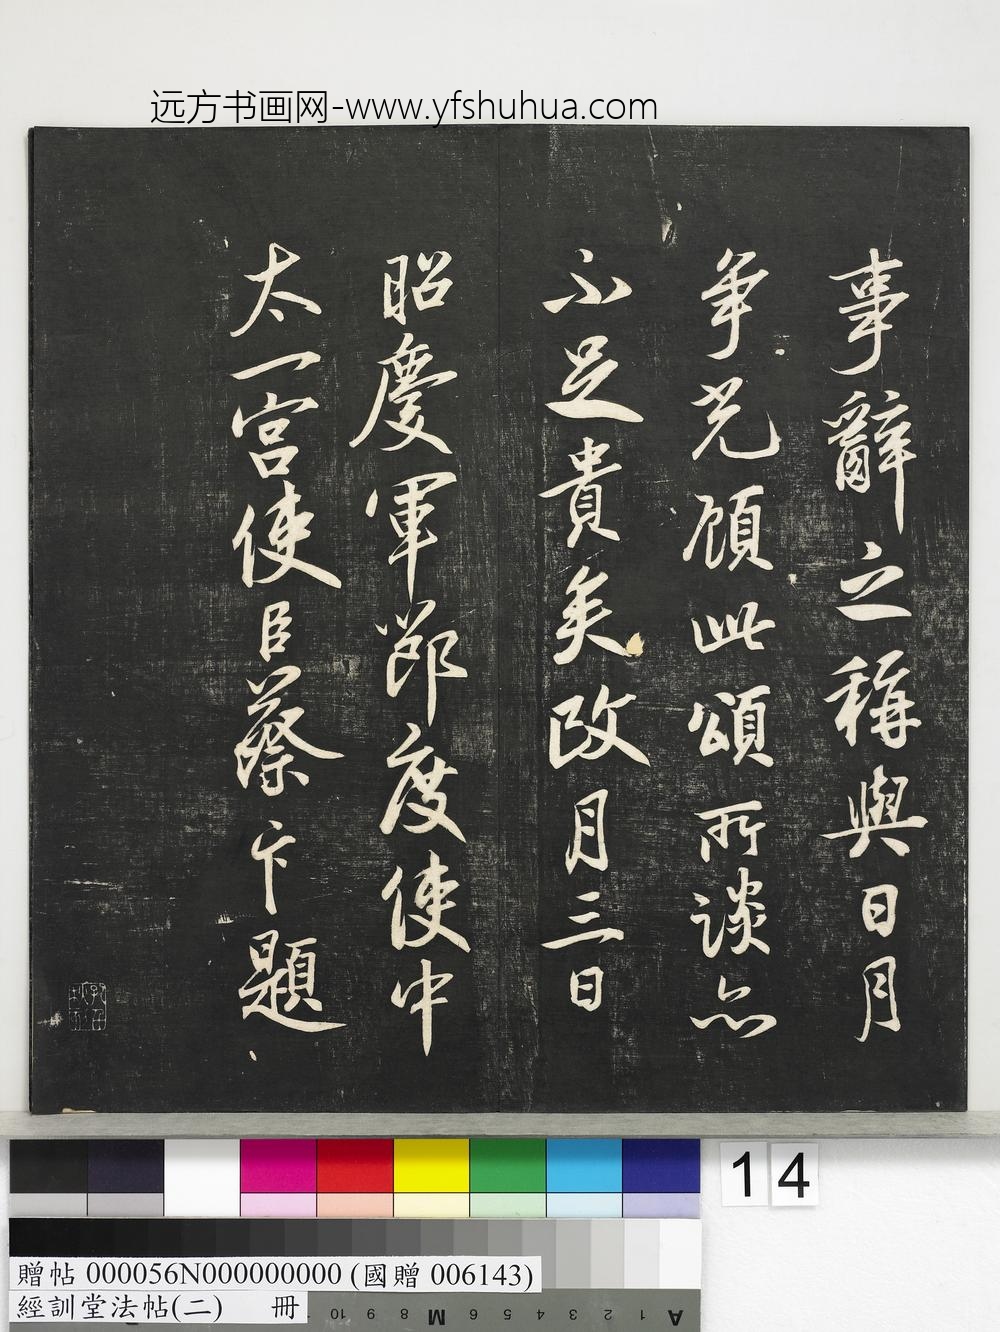 远方书画网-www.yfshuhua.com
事辭之稱與日月
争光顧此頌所談亦
不足貴矣政月三日
昭慶軍節度使中
太一宮使臣蔡卞題
14
贈帖 000056N000000000 (國贈 006143)
經訓堂法帖(二) 冊
10 9 8 M 7 6 5 4 3 2 1 A